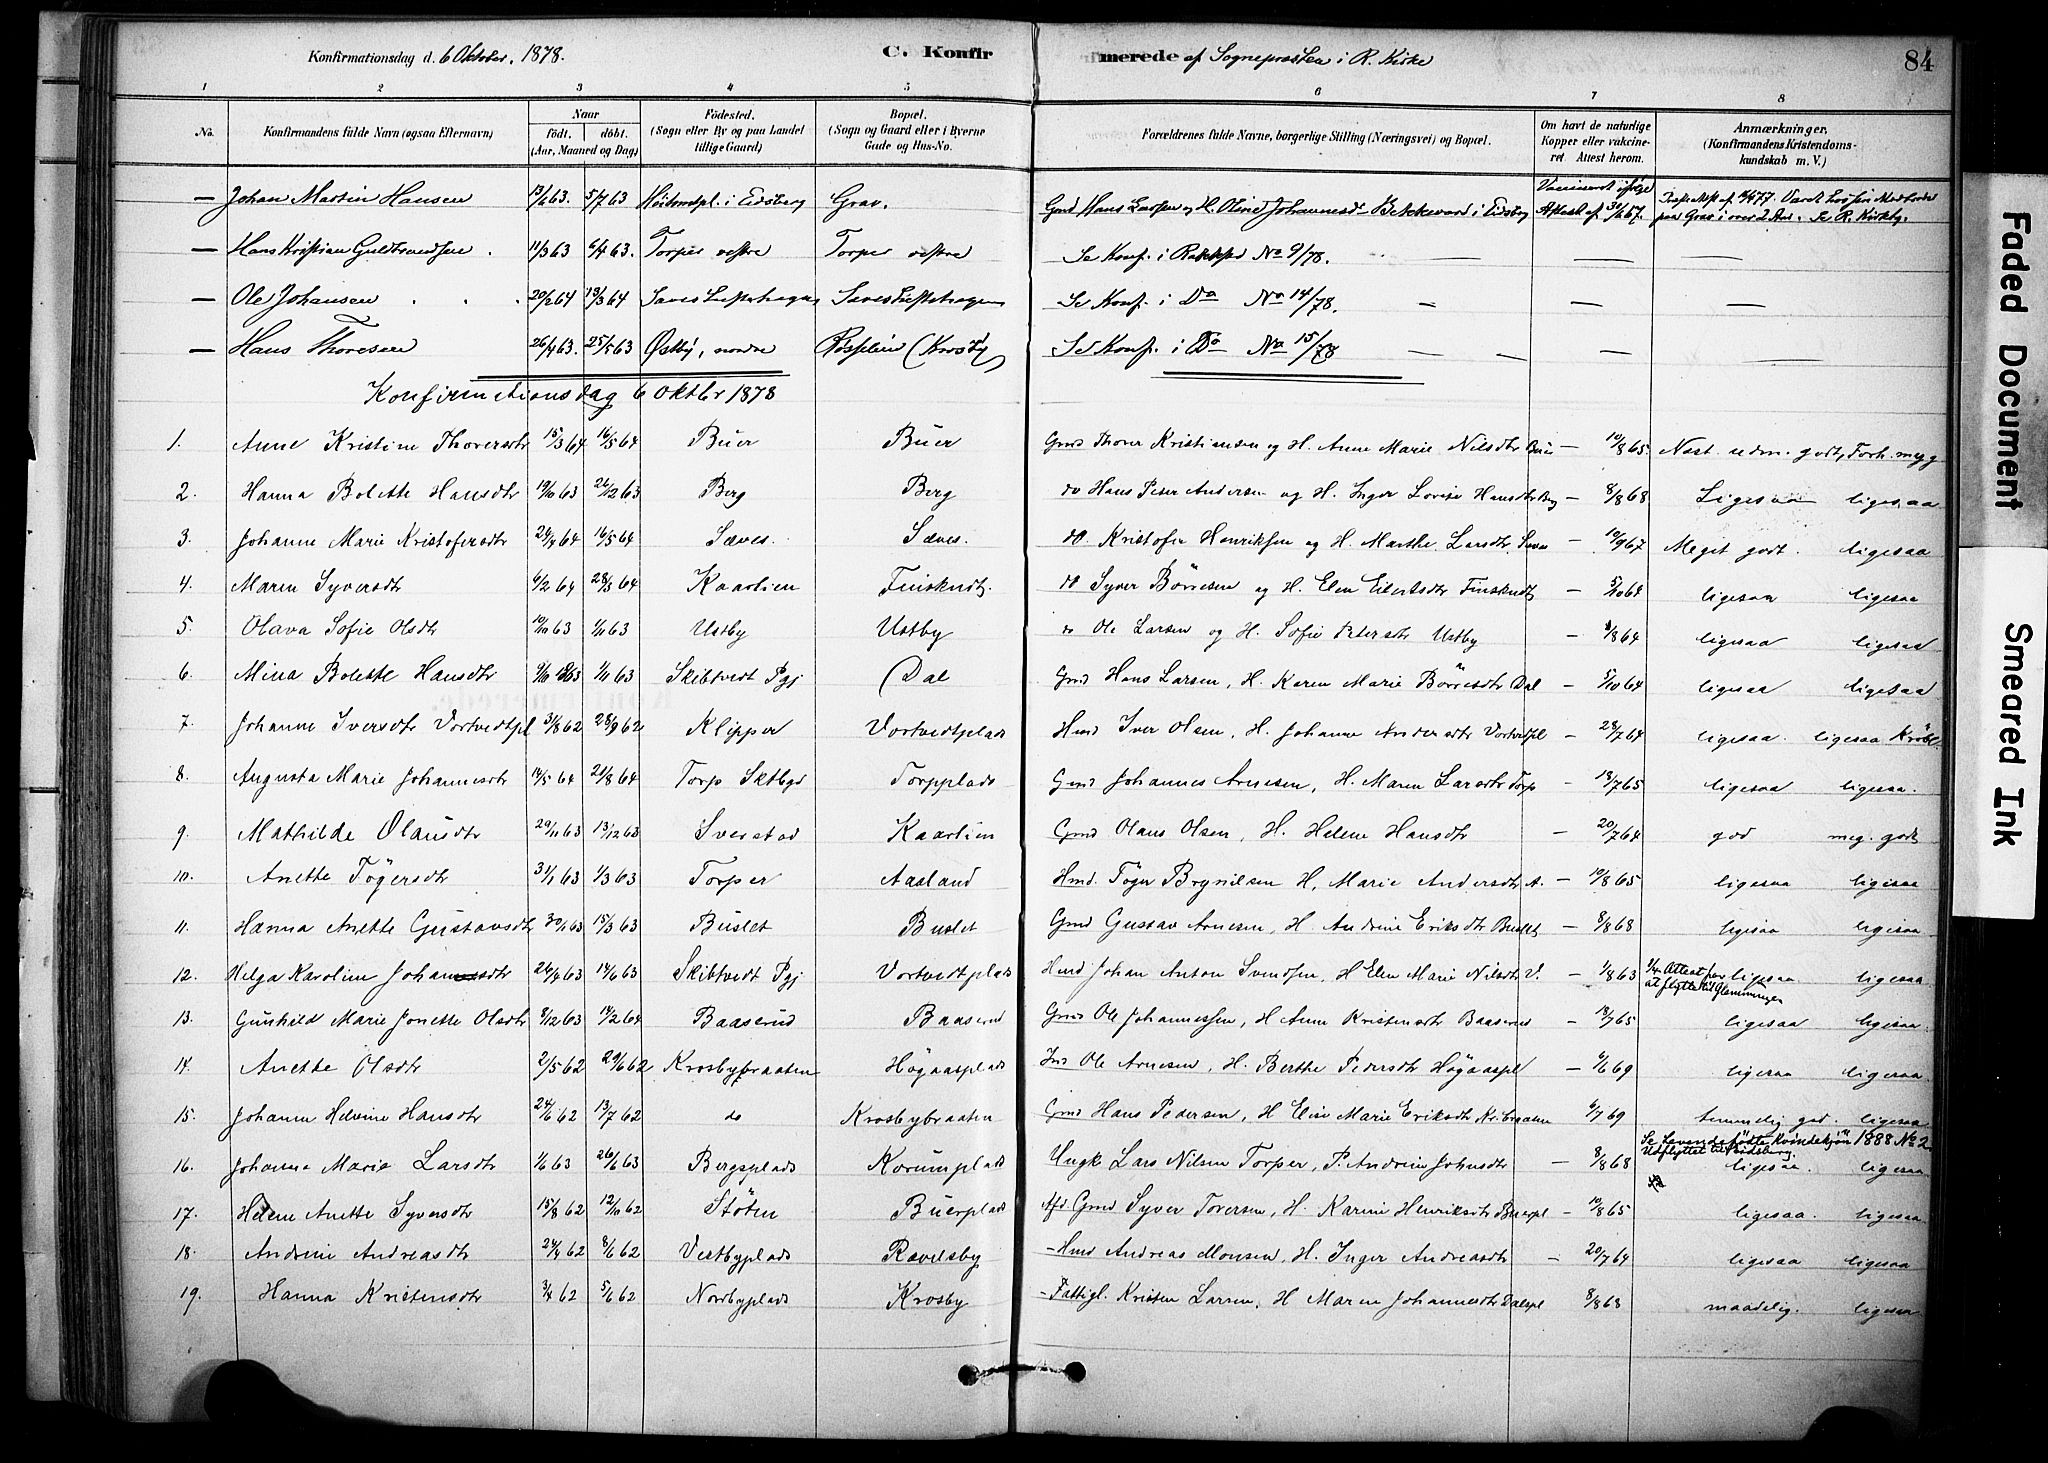 Konfirmationsdag d. 6 Oktober. 1878. C. Konfirmerede af Sognepræsten i R. Kirke 84
1 2 3 4 5 6 7 8
No. Konfirmandens fulde Navn (ogsaa Efternavn) Naar födt. döbt. (Aar, Maaned og Dag) Födested. (Sogn eller By og paa Landet tillige Gaard) Bopæl. (Sogn og Gaard eller i Byerne Gade og Hus-No. Forældrenes fulde Navne, borgerlige Stilling (Næringsvei) og Bopæl. Om havt de naturlige Kopper eller vakcineret. Attest herom. Anmærkninger. (Konfirmandens Kristendomskundskab m. V.)
— Johan Martin Hansen 13/6 63. 5/7 63 i Eidsberg Grav. Gmd Hans Larsen og H. Oline Johannesd Bekkevard i Eidsberg Vaccineret ifölge Attest af 30/6 67. Se R. Kirkeb.
— Hans Kristian Guldbrandsen 11/3 63 6/4 63. Torper vestre Torper vestre Se Konf. i Rakkst No 9/78. — — —
— Ole Johansen 20/2 64 13/3 64 Sæves Se Konf. i Do No 14/78. — — —
— Hans Thoresen 26/4 63. 25/5 63 Østby, nordre (Krosby) Se Konf. i Do No 15/78 — — — —
Konfirmationsdag 6 Oktbr 1878
1. Anne Kristine Thoversdtr 15/3 64 16/5 64 Buer Buer Gmd Thover Kristiansen og H. Anne Marie Nilsdtr Buer — 10/8 65. Næst. udm. godt, Forh. meg g
2. Hanna Bolette Hansdtr 19/10 63 26/12 63 Berg Berg do Hans Peter Andersen og H. Inger Lovise Hansdtr Berg — 8/8 68 Ligesaa ligesaa
3. Johanne Marie Kristofersdtr 24/4 64 16/5 64 Sæves. Sæves. do Kristofer Henriksen og H. Marthe Larsdtr Sæves — 10/9 67 Meget godt. ligesaa
4. Maren Syversdtr 6/2 64 28/3 64 Kaarlien Finskudt. do Syver Börresen og H. Elen Eilertsdtr Finskudt — 5/10 64 ligesaa ligesaa
5. Olava Sofie Olsdtr 10/10 63 1/11 63 Ustby Ustby do Ole Larsen og H. Sofie Petersdtr Ustby — 8/8 64 ligesaa ligesaa
6. Mina Bolette Hansdtr 9/10 1863 1/11 63 Skibtvedt Pgj Dal Gmd Hans Larsen, H. Karen Marie Börresdtr Dal — 5/10 64 ligesaa ligesaa
7. Johanne Iversdtr Vortvedtpl 31/8 62 28/9 62 Klipper Vortvedtplads Hmd Iver Olsen, H. Johanne Andersdtr Vortvedtpl — 28/7 64 ligesaa. ligesaa
8. Augusta Marie Johannesdtr 14/5 64 21/8 64 Torp Sktbgd Torpplads Gmd Johannes Arnesen, H. Maren Larsdtr Torp — 18/7 65 ligesaa ligesaa.
9. Mathilde Olausdtr 29/11 63 13/12 63 Sverstad Kaarlien Gmd Olaus Olsen, H. Helene Hansdtr — 20/7 64 god meg. godt
10. Anette Tögersdtr 31/1 63 1/3 63 Torper Aasland Hmd. Töger Brynilsen H. Marie Andersdtr A. — 10/8 65 ligesaa ligesaa
11. Hanna Anette Gustavsdtr 30/1 63 15/3 63 Buslet Buslet Gmd Gustav Arnesen, H. Andrine Eriksdtr Buslet — 8/8 68 ligesaa ligesaa
12. Helga Karoline Johansdtr 26/4 63 14/6 63 Skibtvedt Pgj Vortvedtplads Hmd Johan Anton Svendsen, H Elen Marie Nilsdtr V. — 1/8 63 Attest for at flytte til Glemminge ligesaa ligesaa
13. Gunhild Marie Jonette Olsdtr 8/12 63 14/2 64 Baaserud Baaserud Gmd Ole Johannessen, H Anne Kristensdtr Baaserud — 18/7 65 ligesaa ligesaa.
14. Anette Olsdtr 2/5 62 29/6 62 Krosbybraaten Högaasplads Ind Ole Arnesen, H. Berthe Pedersdtr Högaaspl — 6/6 69 ligesaa ligesaa.
15. Johanne Helvine Hansdtr 24/6 62 13/7 62 do Krosbybraaten Gmd Hans Pedersen, H Elise Marie Eriksdtr Kr.braaten 6/7 69 temmelig god. ligesaa
16. Johanne Marie Larsdtr 1/6 63 26/6 63 Bergsplads Korumplads Ungk Lars Nilsen Torper, P. Andrine Johnsdtr — 8/8 68 Se Levendefödte Kvindekjön 1888 No 2 Udflyttet til Eidsberg. ligesaa. ligesaa
17. Helene Anette Syversdtr 15/8 62 12/10 62 Stöten Buerplads Afd Gmd Syver Toversen, H. Karine Henriksdtr Buerpl — 10/8 65 ligesaa. ligesaa.
18. Andrine Andreasdtr 24/4 62 8/6 62 Vestbyplads Ravelsby — Hmd Andreas Monsen, H. Inger Andreasdtr — 20/7 64 ligesaa ligesaa
19. Hanna Kristensdtr 3/4 62 5/6 62 Nordbyplads Krosby — Fattigl. Kristen Larsen, H Maren Johannesdtr Dalspl 8/8 63 maadelig. ligesaa
Faded Document
Smeared Ink